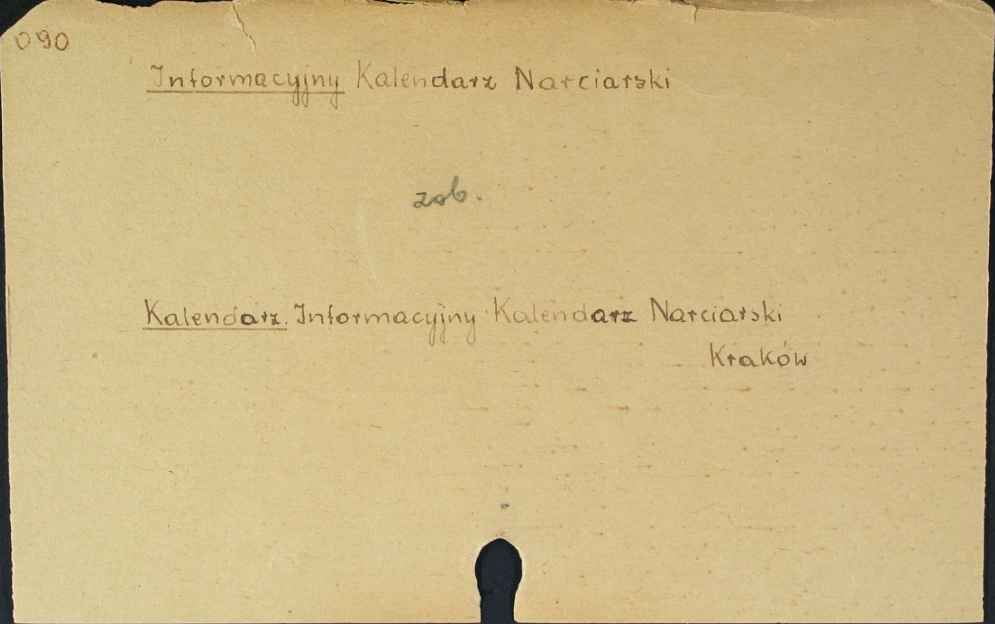 090
Informacyjny Kalendarz Narciarski
zob.
Kalendarz. Informacyjny Kalendarz Narciarski
Kraków